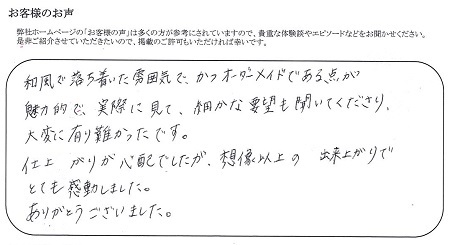 お客様のお声
弊社ホームページの「お客様の声」は多くの方が参考にされていますので、貴重な体験談やエピソードなどをお聞かせください。
是非ご紹介させていただきたいので、掲載のご許可もいただければ幸いです。
和風で落ち着いた雰囲気で、かつオーダーメイドである点が
魅力的で、実際に見て、細かな要望も聞いてくださり、
大変に有り難かったです。
仕上がりが心配でしたが、想像以上の出来上がりで
とても感動しました。
ありがとうございました。